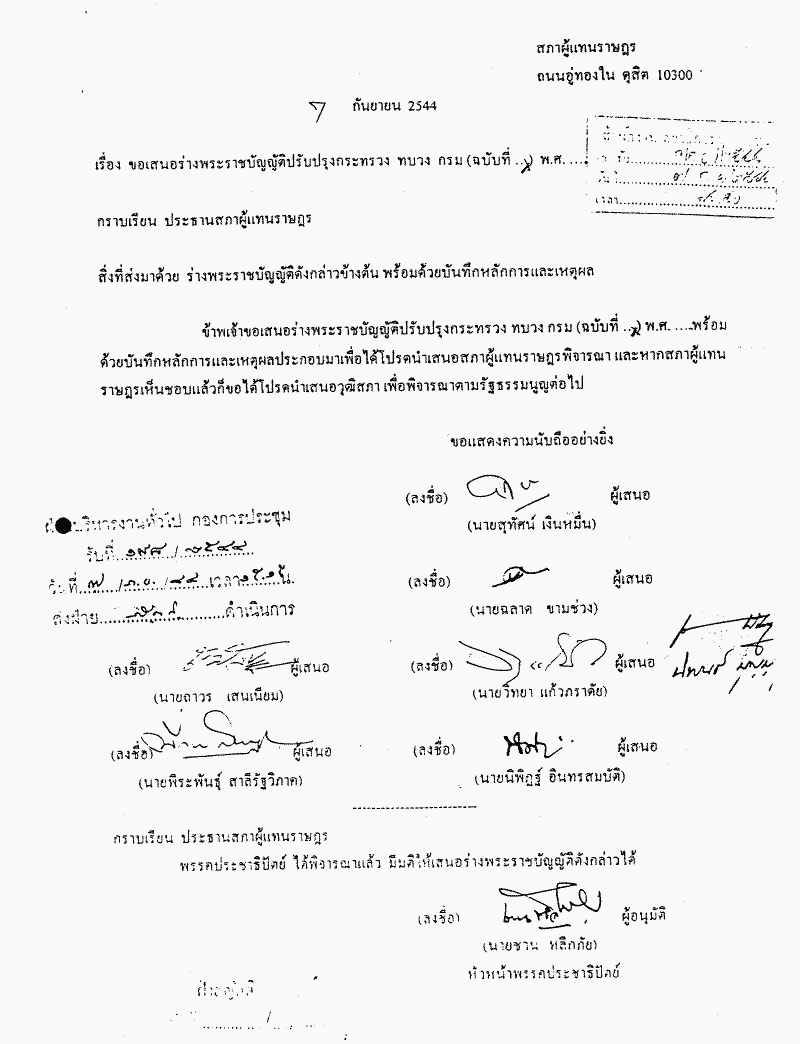 สภาผู้แทนราษฎร
ถนนอู่ทองใน ดุสิต 10300
7 กันยายน 2544
เรื่อง ขอเสนอร่างพระราชบัญญัติปรับปรุงกระทรวง ทบวง กรม (ฉบับที่ ...) พ.ศ. ....
กราบเรียน ประธานสภาผู้แทนราษฎร
สิ่งที่ส่งมาด้วย ร่างพระราชบัญญัติดังกล่าวข้างต้น พร้อมด้วยบันทึกหลักการและเหตุผล
ข้าพเจ้าขอเสนอร่างพระราชบัญญัติปรับปรุงกระทรวง ทบวง กรม (ฉบับที่ ...) พ.ศ. ....พร้อม
ด้วยบันทึกหลักการและเหตุผลประกอบมาเพื่อได้โปรดนำเสนอสภาผู้แทนราษฎรพิจารณา และหากสภาผู้แทน
ราษฎรเห็นชอบแล้วก็ขอได้โปรดนำเสนอวุฒิสภา เพื่อพิจารณาตามรัฐธรรมนูญต่อไป
ขอแสดงความนับถืออย่างยิ่ง
(ลงชื่อ) ผู้เสนอ
(นายสุทัศน์ เงินหมื่น)
บริหารงานทั่วไป กองการประชุม
รับที่ ๑๙๘ / ๒๕๔๔
วันที่ ๗ / ก.ย. / ๔๔ เวลา น.
ส่งฝ่าย ดำเนินการ
(ลงชื่อ) ผู้เสนอ
(นายฉลาด ขามช่วง)
(ลงชื่อ) ผู้เสนอ (ลงชื่อ) ผู้เสนอ
(นายถาวร เสนเนียม) (นายวิทยา แก้วภราดัย)
(ลงชื่อ) ผู้เสนอ (ลงชื่อ) ผู้เสนอ
(นายพีระพันธุ์ สาลีรัฐวิภาค) (นายนิพิฏฐ์ อินทรสมบัติ)
กราบเรียน ประธานสภาผู้แทนราษฎร
พรรคประชาธิปัตย์ ได้พิจารณาแล้ว มีมติให้เสนอร่างพระราชบัญญัติดังกล่าวได้
(ลงชื่อ) ผู้อนุมัติ
(นายชวน หลีกภัย)
หัวหน้าพรรคประชาธิปัตย์